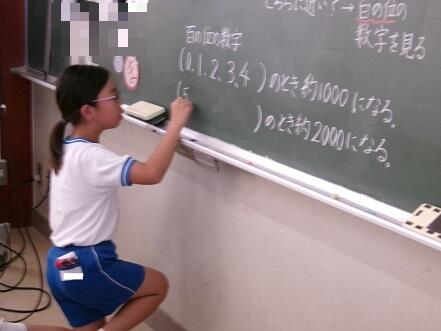 どちらに近い?→百の位の
数字を見る
百の位の数字
(0.1.2.3.4 )のとき約1000になる。
(5
)のとき約2000になる。